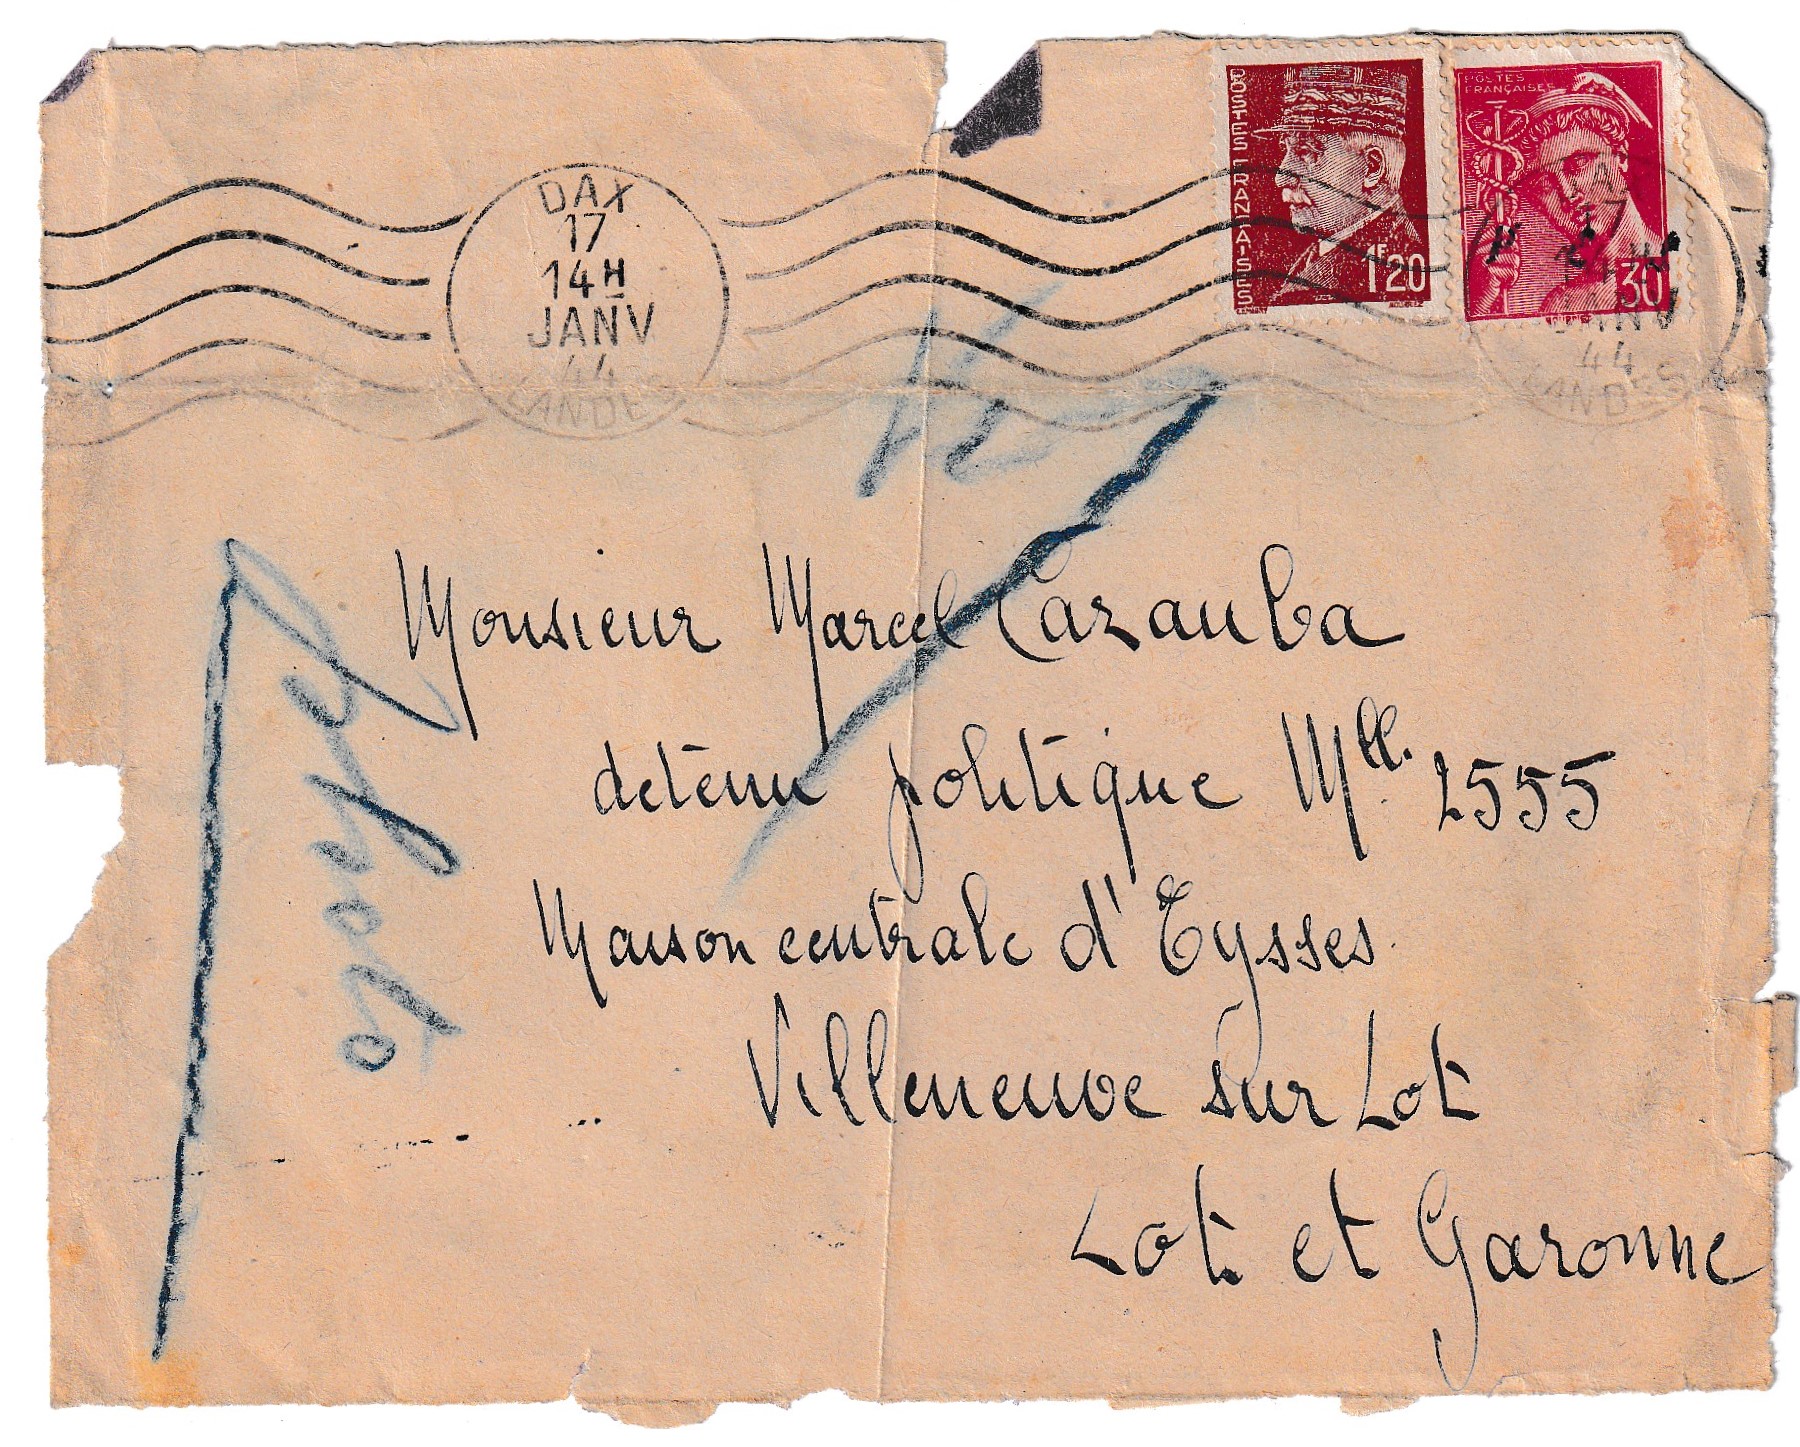 DAX
17
14H
JANV
44
LANDES
POSTES FRANÇAISES
1F20
POSTES
FRANÇAISES
30
17
JANV
44
LANDES
Monsieur Marcel Cazauba
detenu politique Mll. 2555
Maison centrale d'Eysses
Villeneuve sur Lot
Lot et Garonne